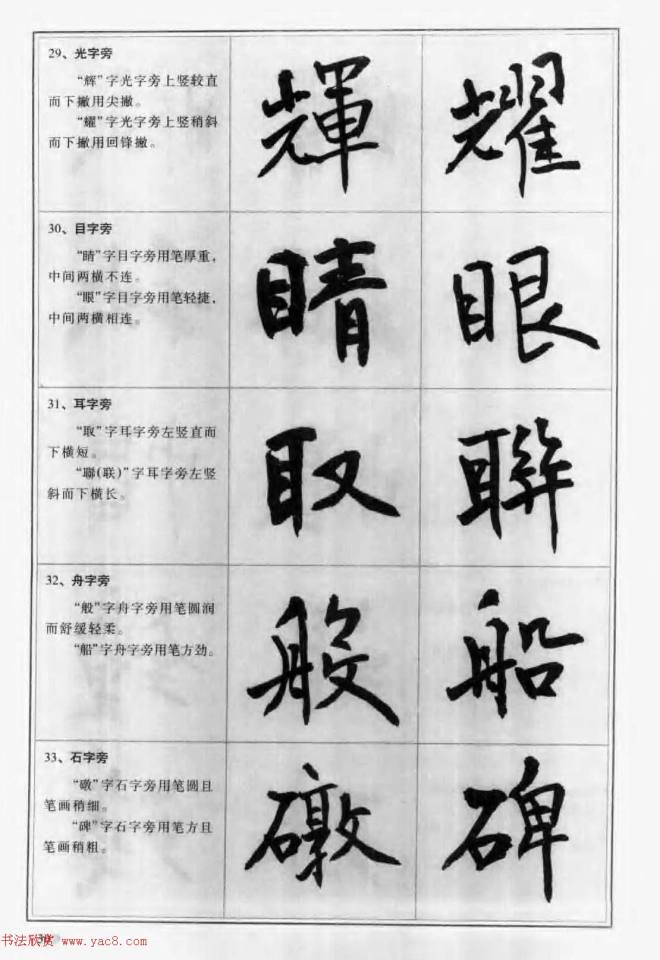 29、光字旁
“辉”字光字旁上竖较直
而下撇用尖撇。
“耀”字光字旁上竖稍斜
而下撇用回锋撇。
輝 耀
30、目字旁
“睛”字目字旁用笔厚重,
中间两横不连。
“眼”字目字旁用笔轻捷,
中间两横相连。
睛 眼
31、耳字旁
“取”字耳字旁左竖直而
下横短。
“聯(联)”字耳字旁左竖
斜而下横长。
取 聯
32、舟字旁
“般”字舟字旁用笔圆润
而舒缓轻柔。
“船”字舟字旁用笔方劲。
般 船
33、石字旁
“礅”字石字旁用笔圆且
笔画稍细。
“碑”字石字旁用笔方且
笔画稍粗。
礅 碑
书法欣赏 www.yac8.com